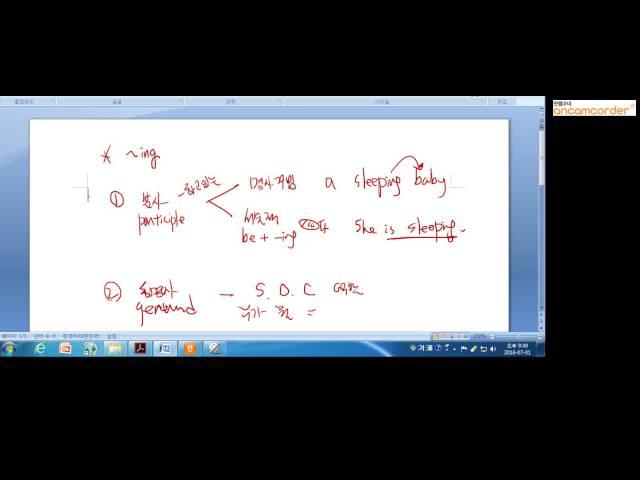 클립보드 글꼴 단락 스타일 편집
안캠코더
ancamcorder
* ~ing
① 분사 ~하고있는 명사 a sleeping baby
participle
be + -ing She is sleeping.
② 동명사 — S. O. C
gerund
페이지: 1/1 단어 수: 0 한국어(대한민국) 삽입 150%
오후 9:49
2016-07-01